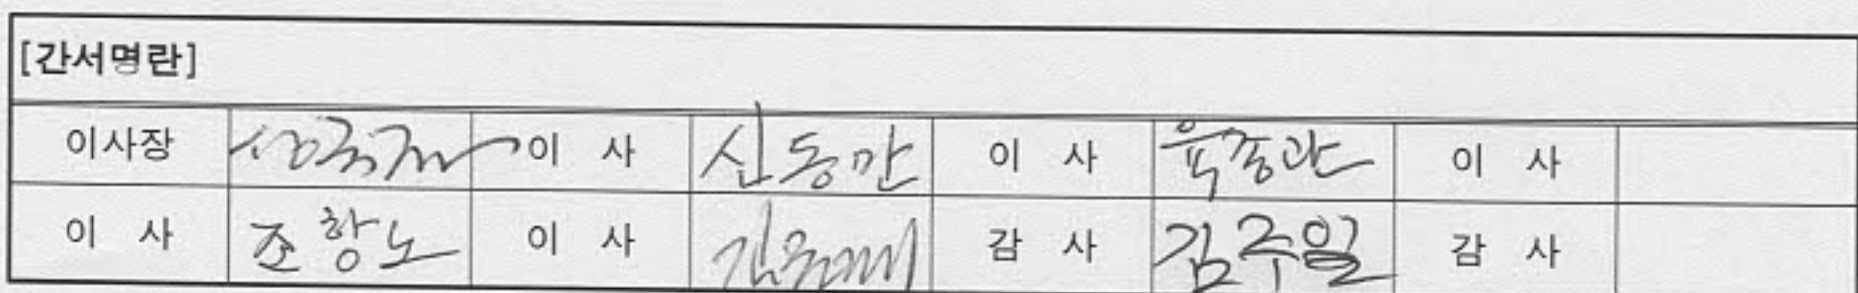 [간서명란]
이사장 이 사 신동만 이 사 육종관 이 사
이 사 조항노 이 사 감 사 김주일 감 사